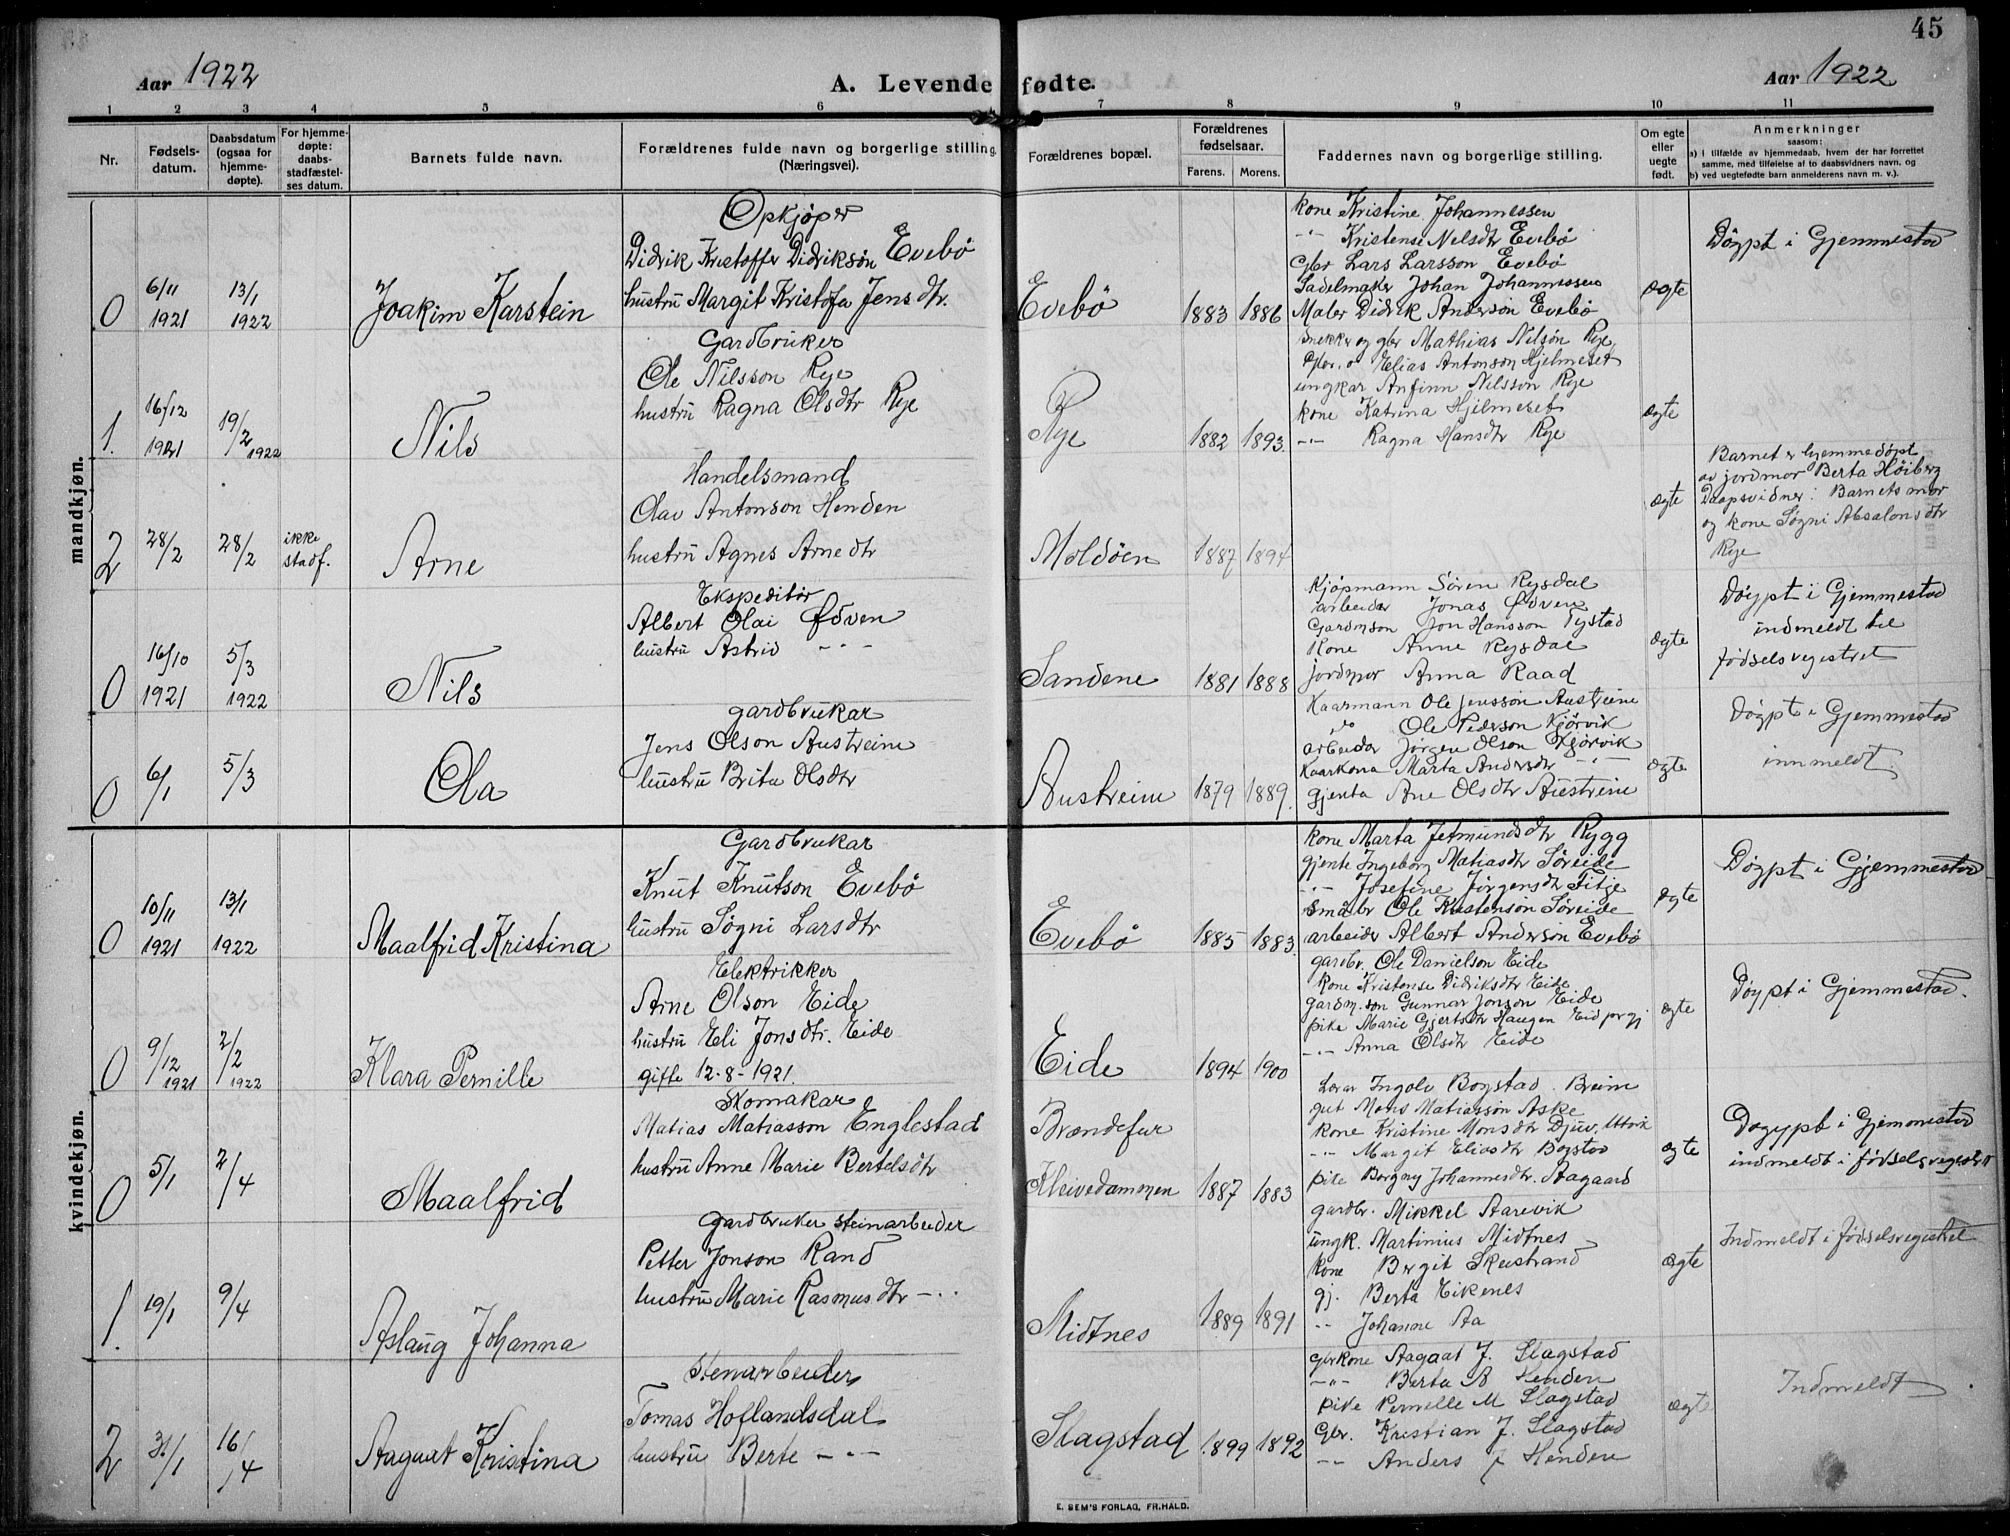 45
Aar 1922
A. Levende fødte.
Aar 1922
1 2 3 4 5 6 7 8 9 10 11
Nr.
Fødselsdatum.
Daabsdatum (ogsaa for hjemmedøpte).
For hjemmedøpte: daabsstadfæstelses datum.
Barnets fulde navn.
Forældrenes fulde navn og borgerlige stilling (Næringsvei).
Forældrenes bopæl.
Forældrenes fødselsaar.
Farens. Morens.
Faddernes navn og borgerlige stilling.
Om egte eller uegte født.
Anmerkninger
saasom:
a) i tilfælde av hjemmedaab, hvem der har forrettet samme, med tilføielse af to daabsvidners navn, og
b) ved uegtefødte barn anmelderens navn m. v.).
mandkjøn.
0
6/11 1921
13/1 1922
Joakim Karstein
Opkjøper
Didrik Kristoffer Didrikson Evebö
hustru Margit Kristofa Jensdtr.
Evebö
1883 1886
kone Kristine Johannessen
-"- Kristense Nelsdtr Evebö
Gbr Lars Larsson Evebö
Sadelmaker Johan Johannessen
Maler Didrik Anderson Evebö
ægte
Döypt i Gjemmestad
1.
16/12 1921
19/2 1922
Nils
Gardbruker
Ole Nilsson Rye
hustru Ragna Olsdtr Rye
Rye
1882 1893.
snekker og gbr Mathias Nilsön Rye
Gbr. o Elias Antonson Hjelmeset
ungkar Anfinn Nilsson Rye
kone Katrina Hjelmeset
-"- Ragna Hansdtr Rye
ægte
2
28/2
28/2
ikke stadf.
Arne
Handelsmand
Olav Antonson Henden
hustru Agnes Arnedtr
Moldöen
1887 1894
ægte
Barnet er hjemmedöpt
av jordmor Berta Höiberg
Daapsvidner: Barnets mor
og kone Sögni Absalonsdtr
Rye
0
16/10 1921
5/3 1922
Nils
Ekspeditör
Albert Olai Ødven
hustru Astrid -"-
Sandene
1881 1888
Kjöpmann Sören Rysdal
arbeider Jonas Ødven
Gardmson Jon Hansson Tystad
Kone Anne Rysdal
jordmor Anna Raad
ægte
Döypt i Gjemmestad
indmeldt til
födselsregestret
0
6/1
5/3
Ola
gardbrukar
Jens Olson Austreim
hustru Brita Olsdtr
Austreim
1879 1889.
Kaarmann Ole Jensson Austreim
do Ole Pederson Kjörvik
arbeidar Jörgen Olson Kjörvik
Kaarkona Marta Andersdtr -"-
gjenta Ane Olsdtr Austreim
ægte
Döypt i Gjemmestad
innmeldt.
kvindekjøn.
0
10/11 1921
13/1 1922
Maalfrid Kristina
Gardbrukar
Knut Knutson Evebö
hustru Sögni Larsdtr
Evebö
1885 1883.
kone Marta Jetmundsdtr Rygg
gjente Ingeborg Matiasdtr Söreide
-"- Josefine Jörgensdtr Fitje
Småbr Ole Kristenson Söreide
arbeider Albert Anderson Evebö
ægte
Döypt i Gjemmestad
0
9/12 1921
2/2 1922
Klara Pernille
Elektrikker
Arne Olson Eide
hustru Eli Jonsdtr. Eide
gifte 12-8-1921.
Eide
1894 1900
gardbr. Ole Danielson Eide
Kone Kristense Didriksdtr Eide
gardm. son Gunnar Jonson Eide
pike Marie Gjertsdtr Haugen Eid prgj
-"- Anna Olsdtr Eide
ægte
Döypt i Gjemmestad.
0
5/1
2/4
Maalfrid
Skomakar
Matias Matiasson Englestad
hustru Anne Marie Bertelsdtr
Brændefur
Kleivedammen
1887 1883
Lærar Ingolv Bogstad Breim
gut Mons Matiasson Aske
Kone Kristine Monsdtr Djuv, Utvik
-"- Margit Eliasdtr Bogstad
pike Borgny Johannesdtr. Aagaard
ægte
Dögypt i Gjemmestad
indmeldt i fødselsregestr
1.
19/1
9/4
Aslaug Johanna
Gardbruker steinarbeider
Petter Jonson Rand
hustru Marie Rasmusdtr -"-
Midtnes
1889 1891
gardbr. Mikkel Aarevik
ungk. Martinius Midtnes
Kone Bergit Skeistrand
gj. Berta Eikenes
-"- Johanne Aa
ægte
Indmeldt i fødselsregistret
2
31/1
16/4
Aagaat Kristina
Stenarbeider
Tomas Hoflandsdal
hustru Berte -"-
Slagstad
1899 1892
Gbrkone Aagaat J. Slagstad
-"- Berta A Henden
pike Pernelle M Slagstad
Gbr. Kristian J. Slagstad
-"- Anders J Henden
ægte
Indmeldt
E. SEM'S FORLAG, FR.HALD.